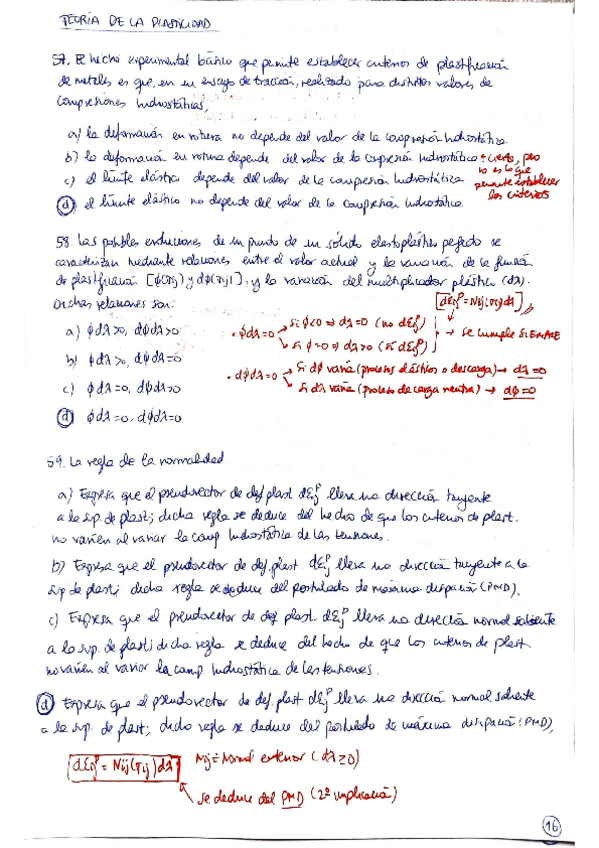 TEORIA DE LA PLASTICIDAD
57. El hecho experimental básico que permite establecer criterios de plastificación
de metales es que, en un ensayo de tracción, realizado para distintos valores de
compresiones hidrostáticas,
a) la deformación en rotura no depende del valor de la compresión hidrostática.
b) la deformación en rotura depende del valor de la compresión hidrostática → cierto, pero
no es lo que
c) el límite elástico depende del valor de la compresión hidrostática permite establecer
los criterios
d) el límite elástico no depende del valor de la compresión hidrostática.
58. Las posibles evoluciones de un punto de un sólido elastoplástico perfecto se
caracterizan mediante relaciones entre el valor actual y la variación de la función
de plastificación [φ(σij) y dφ(σij)], y la variación del multiplicador plástico (dλ).
Dichas relaciones son: [dεij^p = Nij(σij)dλ]
a) φdλ>0, dφdλ>0
• φdλ=0 → Si φ<0 ⇒ dλ=0 (no dεij^p)
→ Si φ=0 ⇒ dλ>0 (sí dεij^p) → Se cumple SIEMPRE
b) φdλ>0, dφdλ=0
• dφdλ=0 → Si dφ varía (proceso elástico o descarga) → dλ=0
c) φdλ=0, dφdλ>0 → Si dλ varía (proceso de carga neutra) → dφ=0
d) φdλ=0, dφdλ=0
59. La regla de la normalidad
a) Expresa que el pseudovector de def. plast dεij^p lleva una dirección tangente
a la sup. de plast; dicha regla se deduce del hecho de que los criterios de plast.
no varíen al variar la comp. hidrostática de las tensiones.
b) Expresa que el pseudovector de def. plast. dεij^p lleva una dirección tangente a la
sup de plast; dicha regla se deduce del postulado de máxima disipación (PMD).
c) Expresa que el pseudovector de def plast. dεij^p lleva una dirección normal saliente
a la sup. de plast; dicha regla se deduce del hecho de que los criterios de plast
no varíen al variar la comp. hidrostática de las tensiones.
d) Expresa que el pseudovector de def. plast dεij^p lleva una dirección normal saliente
a la sup. de plast; dicha regla se deduce del postulado de máxima disipación (PMD).
dεij^p = Nij(σij)dλ Nij = Normal exterior (dλ≥0)
se deduce del PMD (2ª implicación)
16